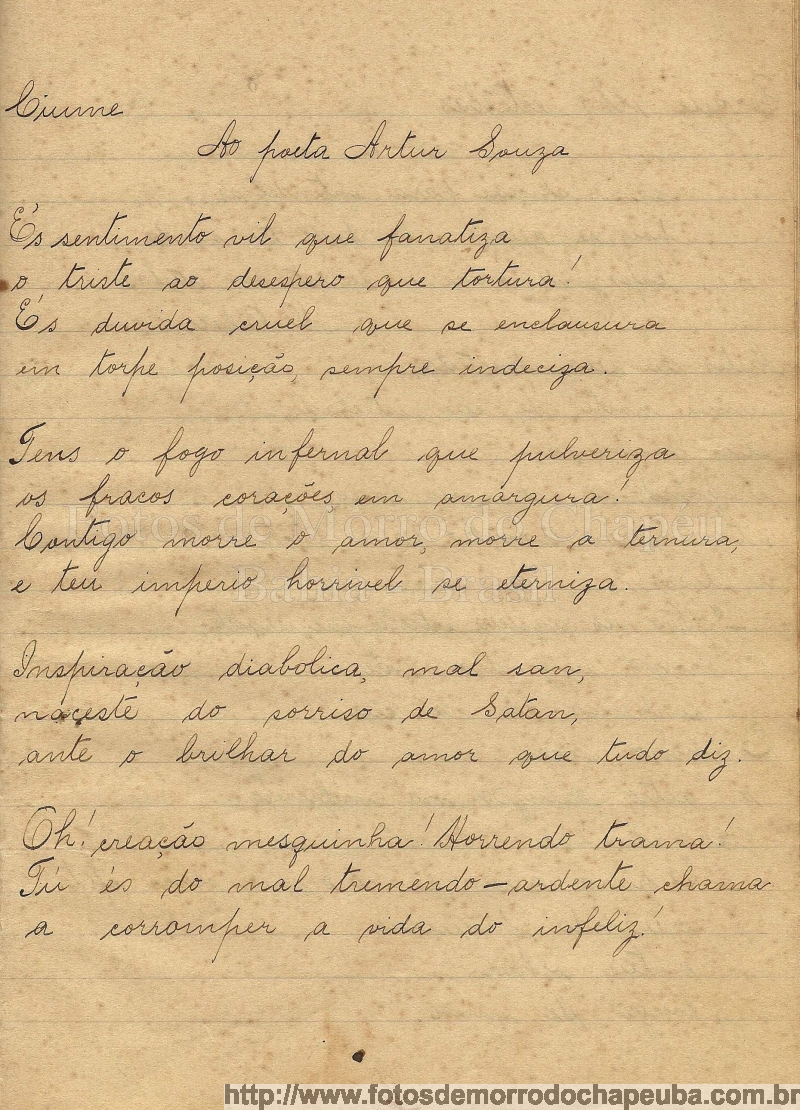 Ciume
Ao poeta Artur Souza
És sentimento vil que fanatiza
o triste ao desespero que tortura!
És duvida cruel que se enclausura
em torpe posição, sempre indeciza.
Tens o fogo infernal que pulveriza
os fracos corações, em amargura!
Contigo morre o amor, morre a ternura,
e teu imperio horrivel se eterniza.
Fotos de Morro do Chapeu
Bahia - Brasil
Inspiração diabolica, mal san,
naceste do sorriso de Satan,
ante o brilhar do amor que tudo diz.
Oh! creação mesquinha! Horrendo trama!
Tú és do mal tremendo—ardente chama
a corromper a vida do infeliz!
http://www.fotosdemorrodochapeuba.com.br